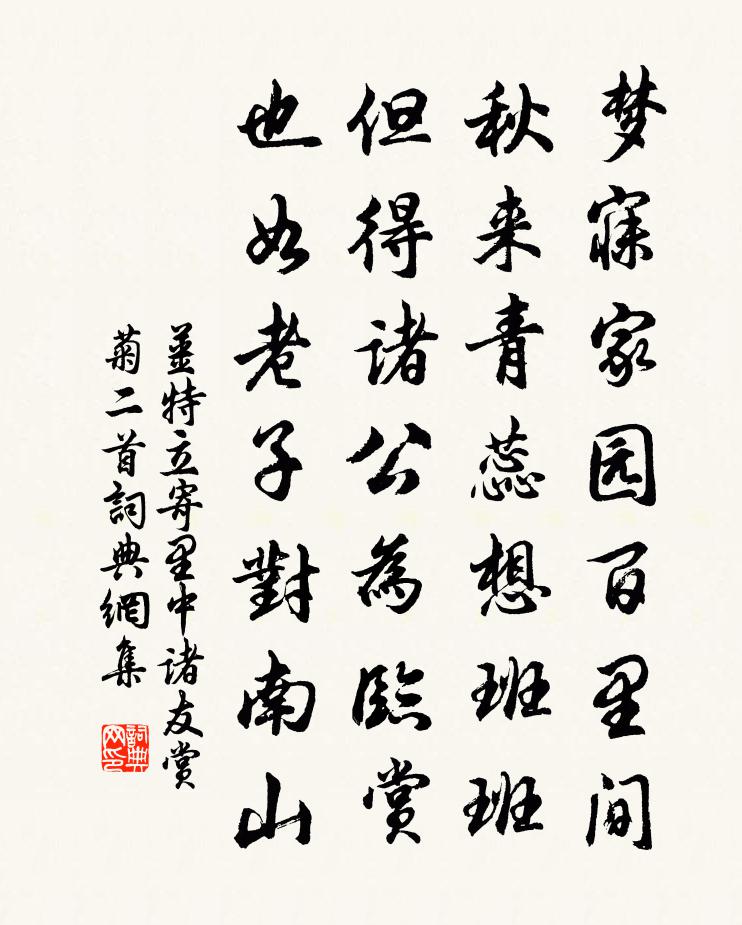 梦寐家园百里间
秋来青蕊想班班
但得诸公為臨赏
也如老子對南山
姜特立寄里中诸友赏
菊二首詞典網集
詞典
网印